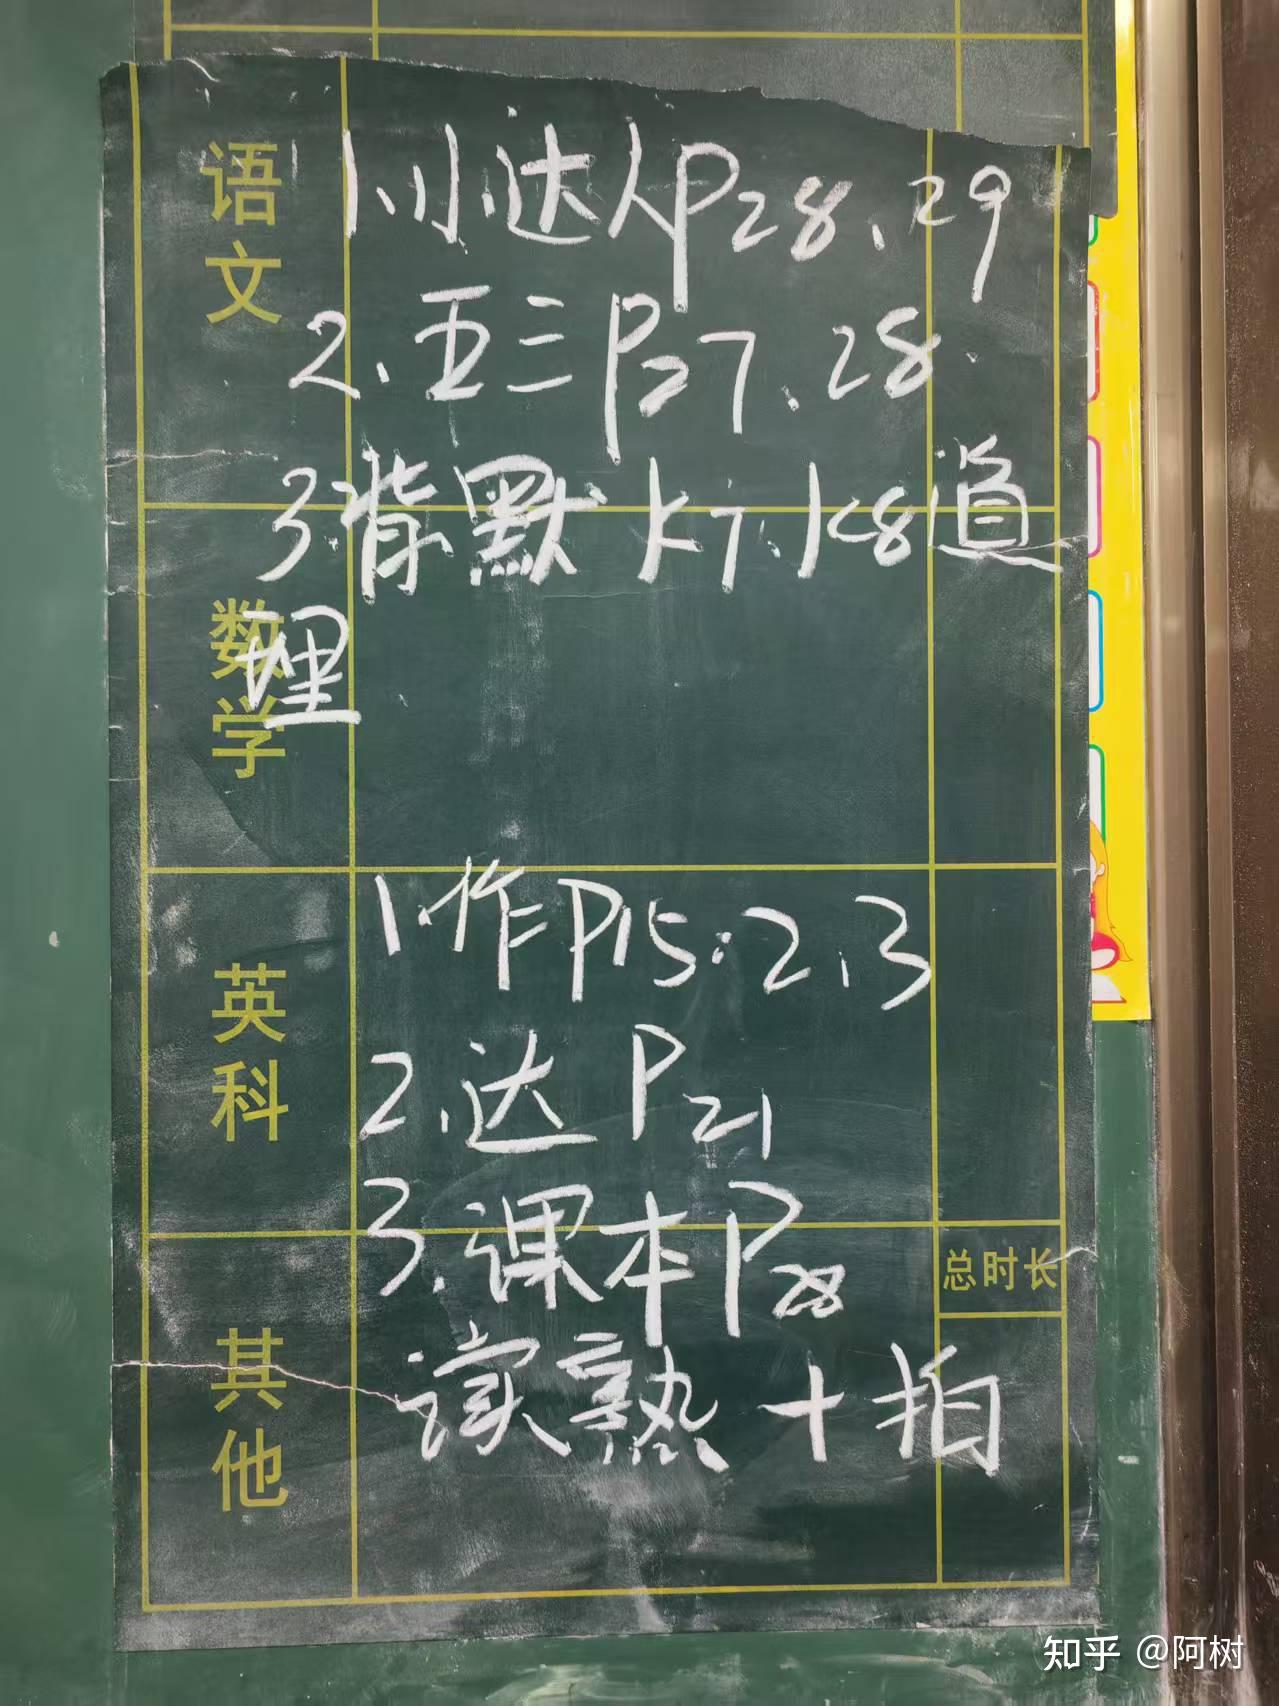 语文
1.小达人P28、29
2.五三P27、28
3.背默K7、K8道
理
数学
英科
1.作P15:2、3
2.达 P21
3.课本P28
读熟+拍
总时长
其他
知乎 @阿树